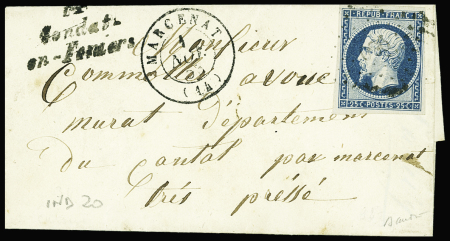 Condat-
en-Feniers
MARCENAT
(14)
REPUB. FRANC.
25c POSTES 25c
Monsieur
avoué
murat département
du Cantal par marcenat
très préssé
IND 20